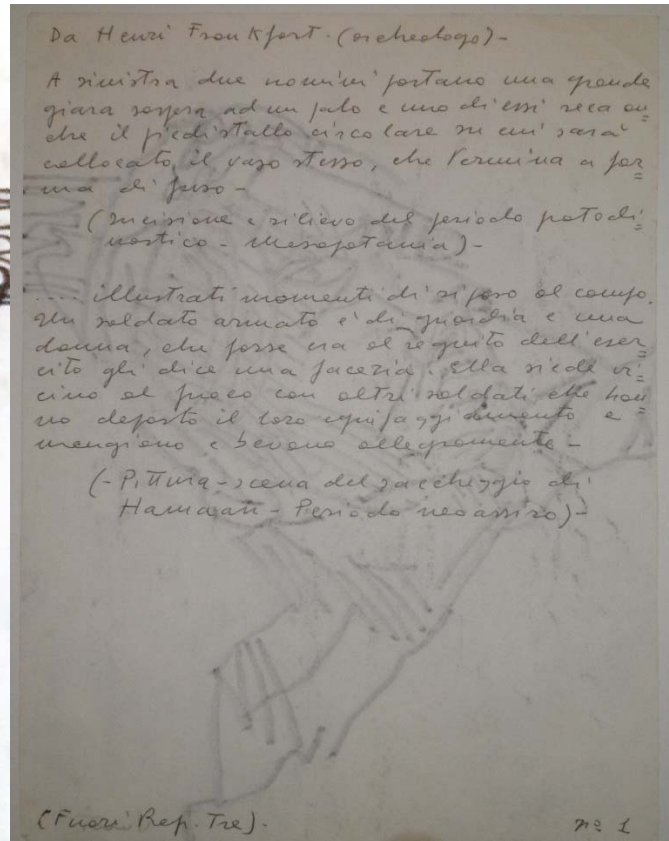 Da Henri Frankfort - (archeologo) -
A sinistra due uomini portano una grande
giara sospesa ad un palo e uno di essi reca an=
che il piedistallo circolare su cui sarà
collocato il vaso stesso, che termina a for=
ma di fuso -
(Incisione e rilievo del periodo protodi=
nastico - Mesopotamia) -
.... illustrati momenti di riposo al campo.
Un soldato armato è di guardia e una
donna, che forse era al seguito dell'eser=
cito gli dice una facezia. Ella siede vi=
cino al fuoco con altri soldati che han=
no deposto il loro equipaggiamento e
mangiano e bevono allegramente -
(- Pittura - scena del saccheggio di
Hamaan - Periodo neoassiro) -
(Fuori Rep. Tre) -
nº 1